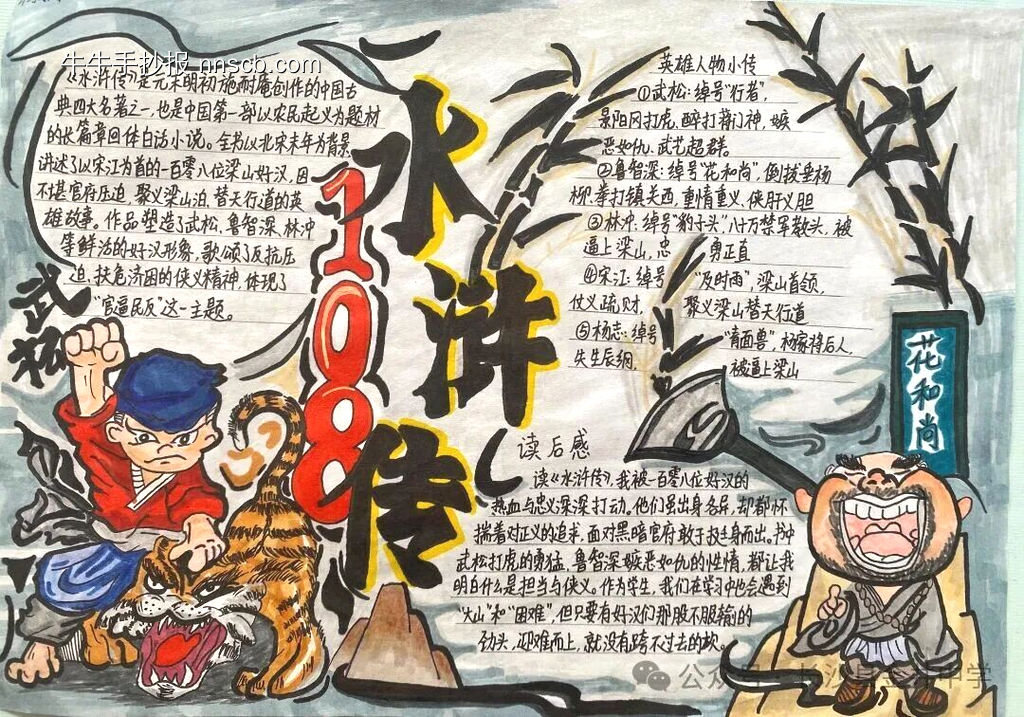 牛牛手抄报 nnscb.com
《水浒传》是元末明初施耐庵创作的中国古
典四大名著之一,也是中国第一部以农民起义为题材
的长篇章回体白话小说。全书以北宋末年为背景
讲述了以宋江为首的一百零八位梁山好汉,因
不堪官府压迫 聚义梁山泊,替天行道的英
雄故事。作品塑造了武松、鲁智深、林冲
等鲜活的好汉形象,歌颂了反抗压
迫、扶危济困的侠义精神,体现了
“官逼民反”这一主题。
武松
水浒传
1088
英雄人物小传
①武松:绰号“行者”,
景阳冈打虎,醉打蒋门神,嫉
恶如仇、武艺超群。
②鲁智深:绰号“花和尚”,倒拔垂杨
柳,拳打镇关西,重情重义,侠肝义胆
③林冲:绰号“豹子头”,八十万禁军教头,被
逼上梁山,忠勇正直
④宋江:绰号“及时雨”,梁山首领,
仗义疏财,聚义梁山替天行道
⑤杨志:绰号“青面兽”,杨家将后人,
失生辰纲,被逼上梁山
花和尚
读后感
读《水浒传》,我被一百零八位好汉的
热血与忠义深深打动。他们虽出身各异,却都怀
揣着对正义的追求,面对黑暗官府敢于挺身而出。书中
武松打虎的勇猛,鲁智深嫉恶如仇的性情,都让我
明白什么是担当与侠义。作为学生,我们在学习中也会遇到
“大山”和“困难”,但只要有好汉们那股不服输的
劲头,迎难而上,就没有跨不过去的坎。
公众号
中学